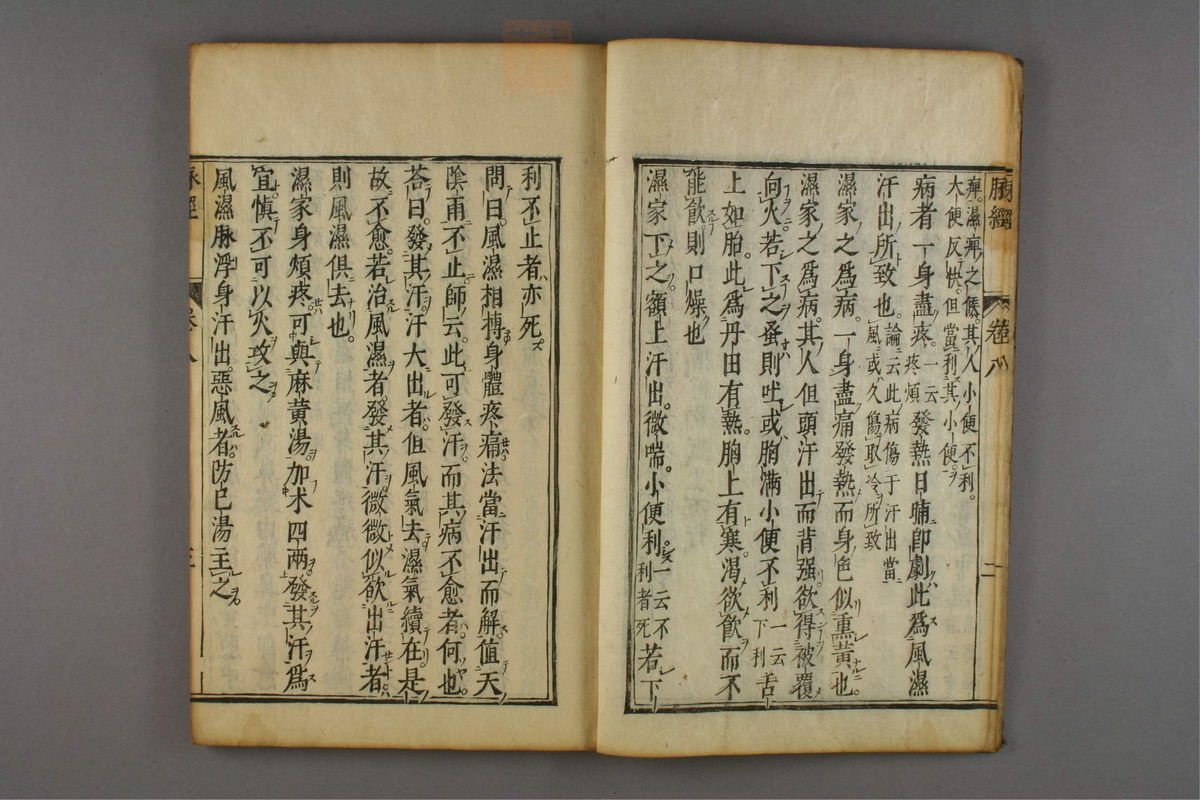 脈經 卷八 二
痺濕痺之候其人小便不利
大便反快但當利其小便
病者一身盡疼一云疼煩發熱日晡即劇此爲風濕
汗出所致也論云此病傷于汗出當風或久傷取冷所致
濕家之爲病一身盡痛發熱而身色似熏黃也
濕家之爲病其人但頭汗出而背强欲得被覆
向火若下之蚤則吐或胸滿小便不利一云下利舌
上如胎此爲丹田有熱胸上有寒渴欲飲而不
能飲則口燥也
濕家下之額上汗出微喘小便利一云不利者死若下
利不止者亦死
問曰風濕相搏身體疼痛法當汗出而解值天
陰雨不止師云此可發汗而其病不愈者何也
荅曰發其汗汗大出者但風氣去濕氣續在是
故不愈若治風濕者發其汗微微似欲出汗者
則風濕俱去也
濕家身煩疼可與麻黃湯加术四兩發其汗爲
宜慎不可以火攻之
風濕脉浮身汗出惡風者防已湯主之